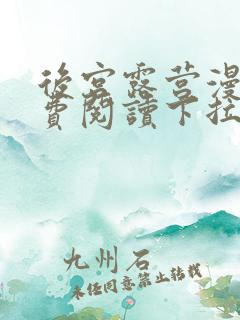 後宮露营漫
費閱讀下拉
九州石
未经同意禁止转载